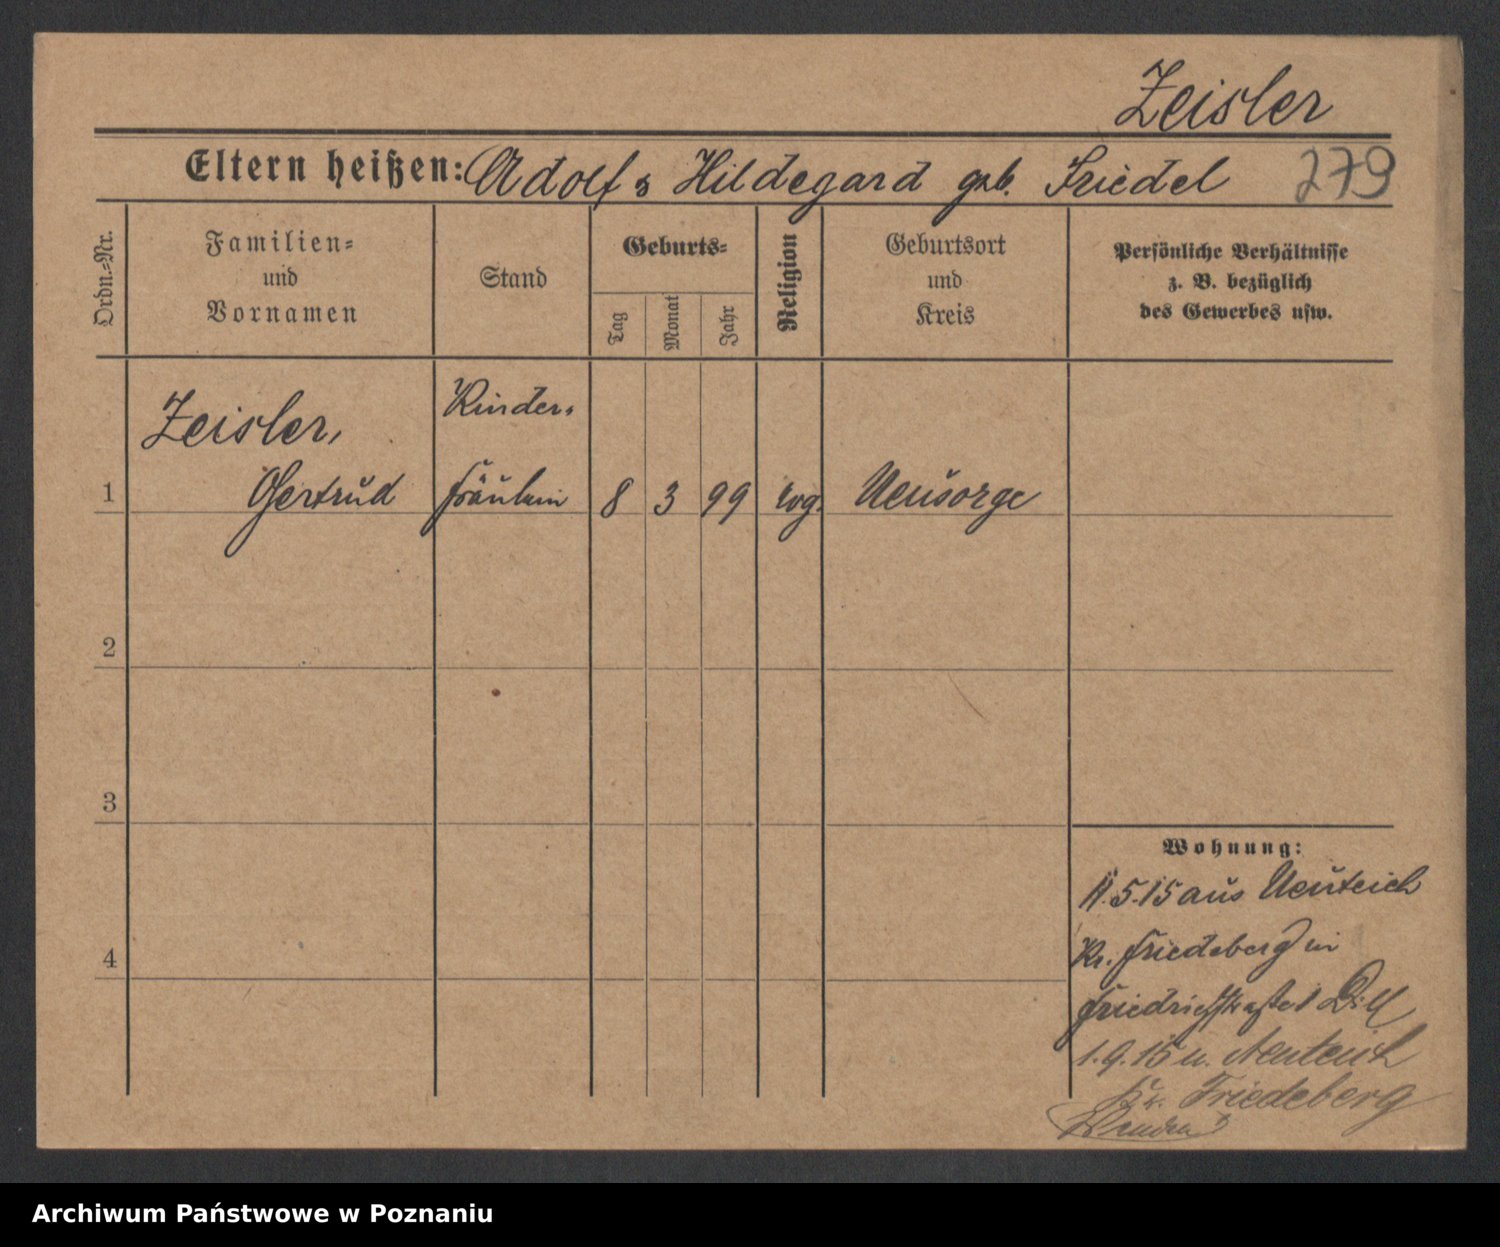 Zeisler
Eltern heißen: Adolf & Hildegard geb. Friedel 279
Ordn.=Nr.
Familien=
und
Vornamen
Stand
Geburts=
Tag
Monat
Jahr
Religion
Geburtsort
und
Kreis
Persönliche Verhältnisse
z. B. bezüglich
des Gewerbes usw.
Zeisler, Kinder=
1 Gertrud fräulein 8 3 99 evg. Neusorge
2
3
4
Wohnung:
11.5.15 aus Neuteich
Kr. Friedeberg in
1.9.15 n. Neuteich
Kr. Friedeberg
Archiwum Państwowe w Poznaniu